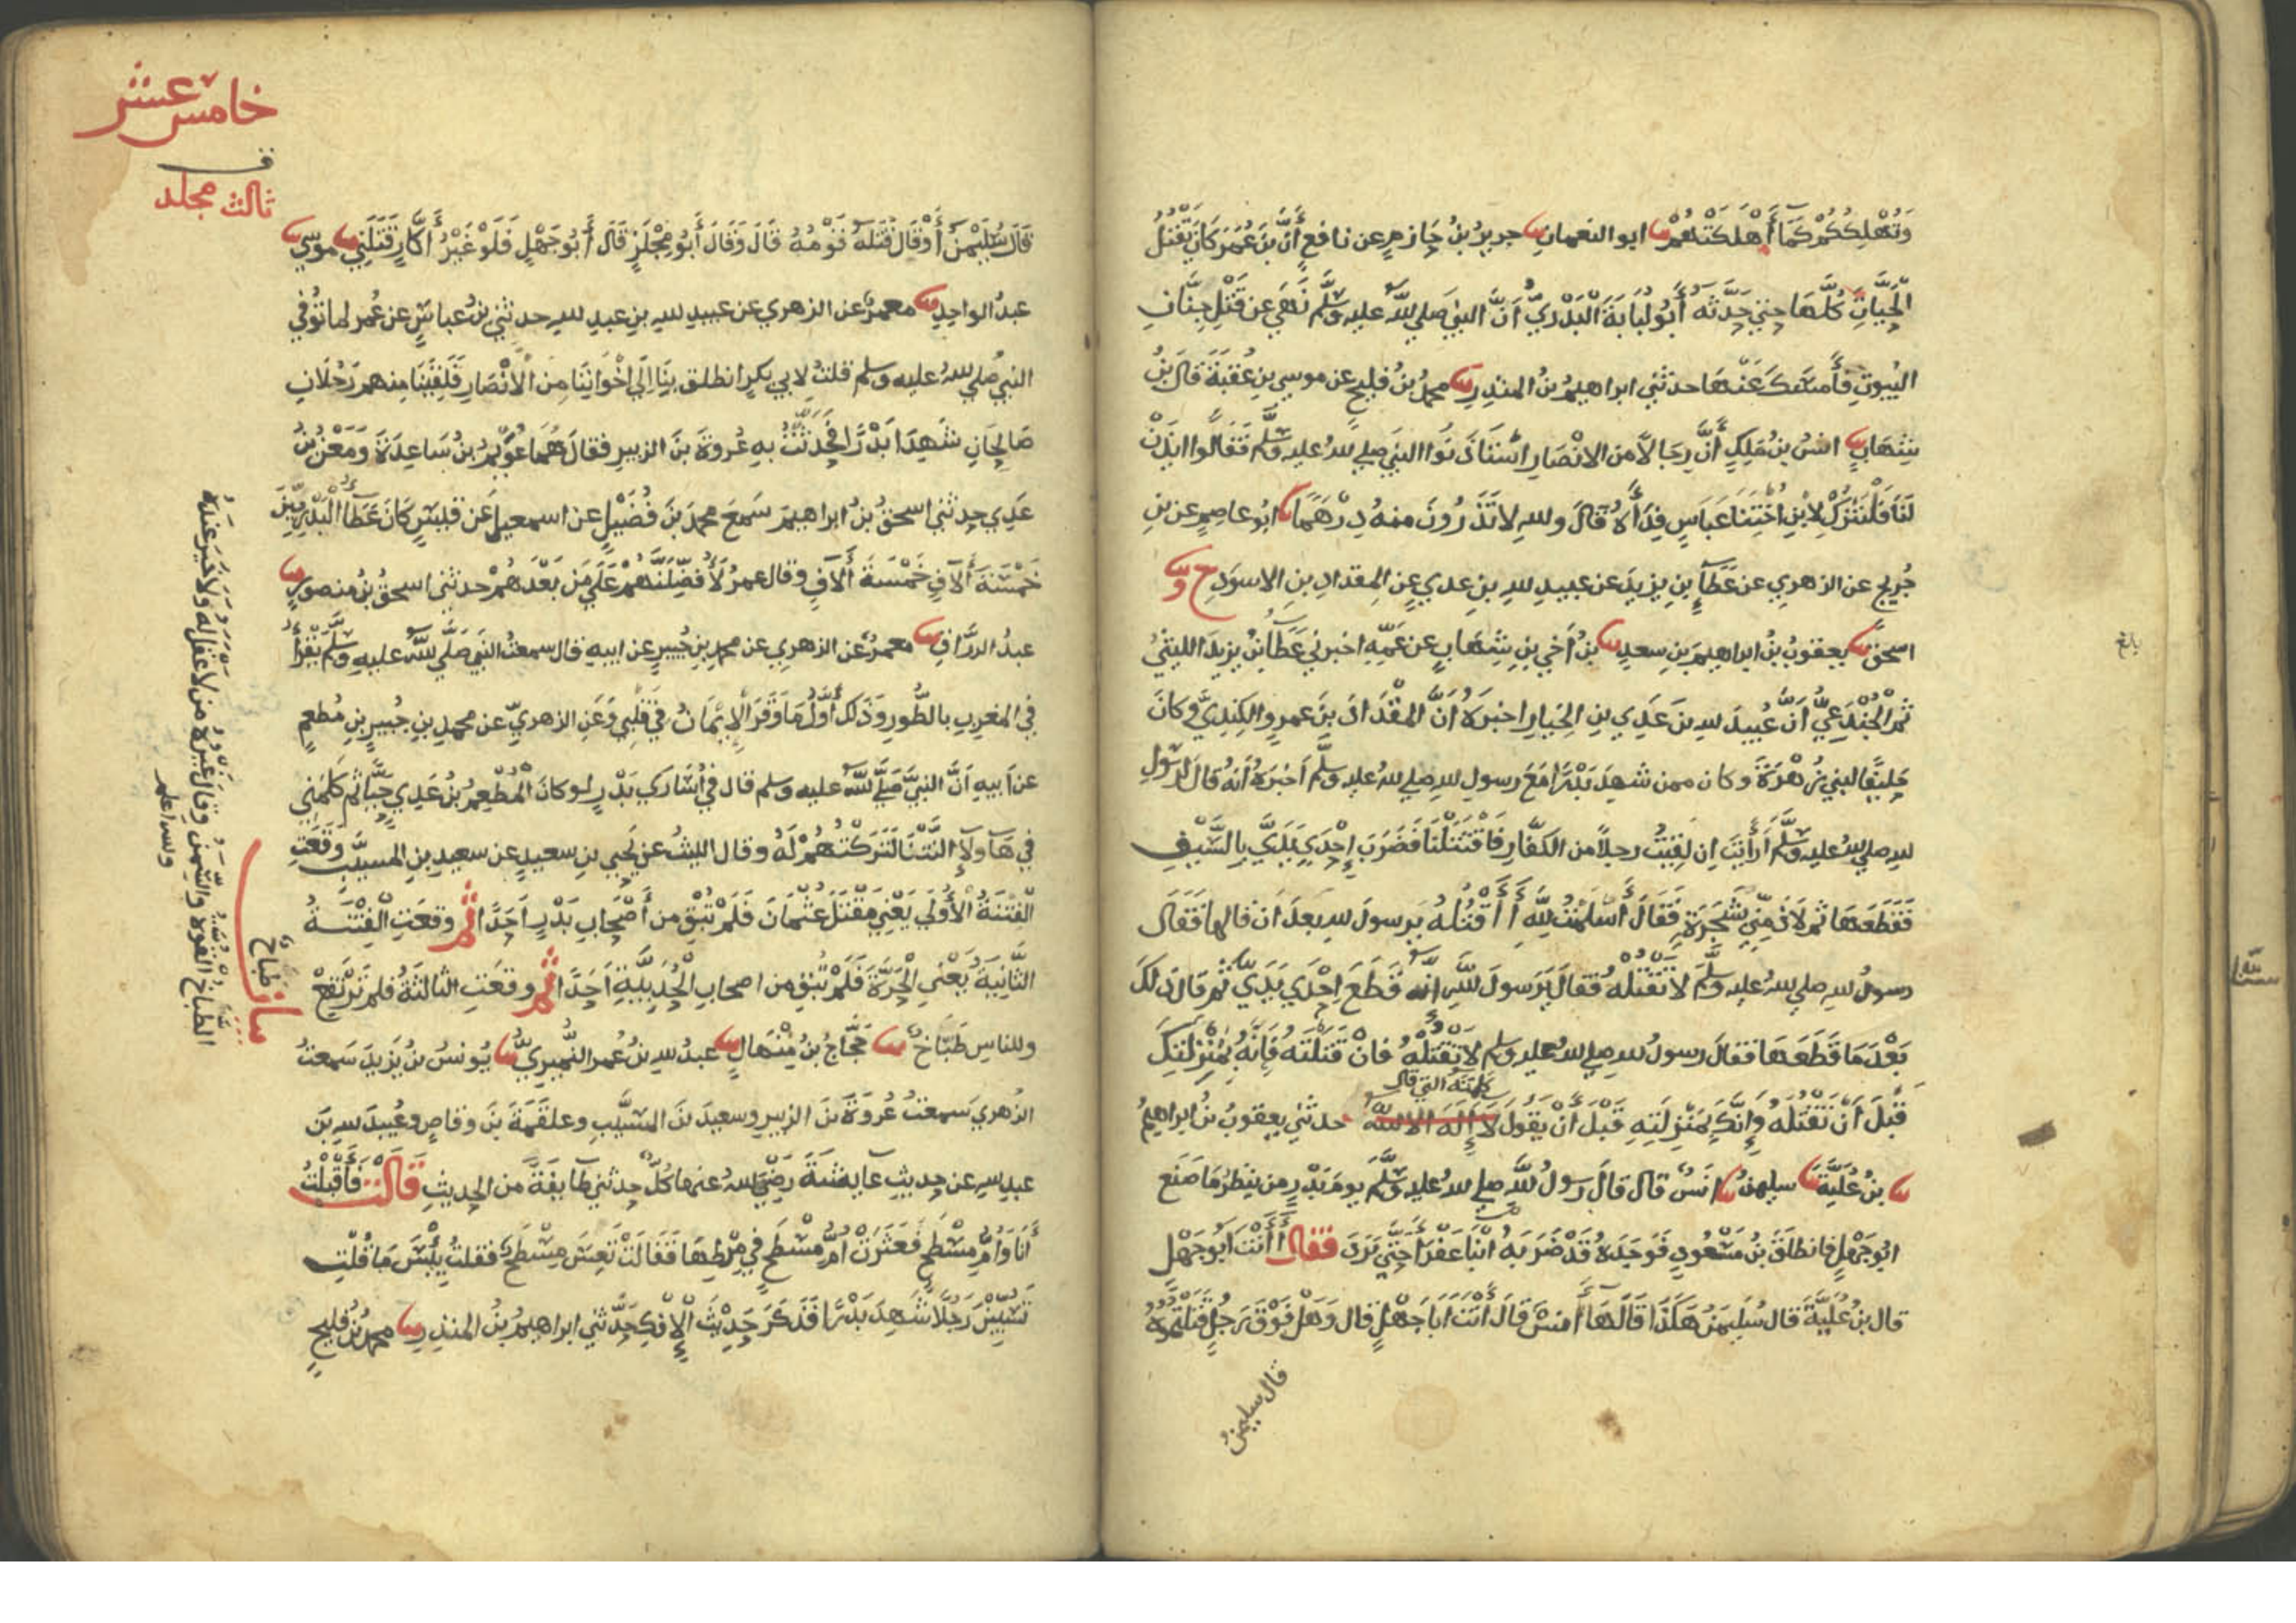 وَتُهْلِكُكُمْ كَمَا أَهْلَكَتْهُمْ ثنا ابو النعمان ثنا جرير بن حازم عن نافع أنَّ بنَ عُمَرَ كانَ يَقْتُلُ
الْحَيَّاتِ كُلَّهَا حتي حَدَّثَه أَبُو لُبَابَةَ الْبَدْرِيُّ أنَّ النبيَّ صلي الله عليه وسلَّم نَهَي عن قَتْلِ جِنَّانِ
البُيوتِ فَأَمْسَكَ عَنْهَا حدثني ابراهيمُ بنُ المنذِرِ ثنا محمدُ بنُ فليحٍ عن موسي بنِ عُقبَةَ قالَ بنُ
شِهَابٍ ثنا انسُ بنُ مَلِكٍ أنَّ رِجَالًا من الانْصَارِ اسْتَأذَنُوا النبيَّ صلي لله عليه وسلَّم فَقَالُوا ايذَنْ
لَنَا فَلْنَتْرُكْ لِابْنِ اُخْتِنَا عَبَّاسٍ فِدَأَهُ قالَ ولله لا تَذَرُونَ منه دِرْهَمًا ثنا ابُو عاصِمٍ عن بنِ
جُرَيجٍ عن الزهري عن عَطَآءِ بنِ يزيدَ عن عبيدِ للهِ بنِ عدي عنِ المِقدادِ بنِ الاسوَدِ ح وثنا
اسحقُ ثنا يعقوبُ بنُ ابراهيمَ بنِ سعدٍ ثنا بنُ أخي بنِ شِهَابٍ عن عَمِّهِ اخبرني عَطَآءُ بنُ يزيدَ الليثيُّ
ثمَّ الْجُنْدَعِيُّ أنَّ عُبيدَ للهِ بنَ عَدِي بنِ الخِيارِ اخبَرَهُ أنَّ المِقْدَادَ بنَ عمرٍو الكِنِديَّ وكانَ
حَلِيفًا لبني زُهْرَةَ وكان ممن شهِدَ بَدْرًا مَعَ رسولِ للهِ صلي للهُ عليه وسلَّم أخبَرَهُ أنه قالَ لرسولِ
للهِ صلي للهُ عليه وسلَّم أَرَأَيْتَ ان لقِيتُ رجلاً من الكفَّارِ فَاقْتَتَلْنَا فَضَرَبَ إِحْدَي يَدَيَّ بِالسَّيْفِ
فَقَطَعَهَا ثم لَاذَ مِنِّي بِشَجَرَةٍ فَقَالَ أَسْلَمْتُ لِلَّهِ أَ أَقْتُلُهُ يَرسولَ للهِ بعدَ ان قالها فَقَالَ
رسولُ للهِ صلي للهُ عليه وسلَّم لا تَقْتُلْهُ فقالَ يَرَسولَ للَّهِ انَّه قَطَعَ إحْدَي يَدَيَّ ثم قالَ ذلكَ
بَعْدَ مَا قَطَعَهَا فقالَ رسولُ للهِ صلي للهُ عليه وسلم لا تَقْتُلْهُ فانْ قَتَلْتَه فَإِنَّهُ بِمَنْزِلَتِكَ
كلمتَهُ التي قال
قَبْلَ أنْ تَقْتُلَهُ وَإِنَّكَ بِمَنْزِلَتِهِ قَبْلَ أنْ يَقُولَ لَا إِلَهَ الا الله حدثني يعقوبُ بنُ ابراهيمُ
ثنا بنُ عُلَيَّةَ ثنا سليمنُ ثنا انَسٌ قال قالَ رسولُ للَّهِ صلي للهُ عليه وسلَّم يومَ بَدْرٍ من ينظُرُ مَا صَنَعَ
ابُو جَهْلٍ فانطلَقَ بنُ مَسْعُودٍ فَوَجَدَهُ قَدْ ضَرَبَهُ ابْنَا عَفْرَاءَ حَتَّي بَرَدَ فقال أَأَنْتَ أبُو جَهْلٍ
قال بنُ عُلَيَّةَ قال سُلَيمنُ هَكَذَا قَالَهَا أنسٌ قَالَ أَنتَ ابَا جَهْلٍ قال وَهَلْ فَوْقَ رَجُلٍ قَتَلْتُمُوهُ
قال سليمنُ
بلغ
خامس عشر
ف
ثالث مجلد
قالَ سُلَيْمنُ أَوْ قَالَ قَتَلَهُ قَوْمُهُ قالَ وَقالَ أَبُو مِجْلَزٍ قالَ أَبُو جَهْلٍ فَلَوْ غَيْرُ أَكَّارٍ قَتَلَنِي ثنا موسي ثنا
عبدُ الواحِدِ ثنا معمرٌ عن الزهري عن عبيدِ للهِ بنِ عبدِ للهِ حدثني بنُ عباسٍ عن عُمَر لما تُوُفِّي
النبيُ صلي للهُ عليه وسلم قلتُ لابي بكرٍ انطلق بِنَا إلَي إخْوَانِنَا من الْأَنْصَارِ فَلَقِيَنَا منهم رَجُلَانِ
صَالِحَانِ شَهِدَا بَدْرًا فَحَدَّثْتُ بهِ عُروةَ بنَ الزبيرِ فقالَ هُمَا عُوَيْمُ بنُ سَاعِدَةَ وَمَعْنُ بنُ
عَدِيٍ حدثني اسحقُ بنُ ابراهيمَ سَمِعَ محمدَ بنَ فُضَيْلٍ عن اسمعيلَ عَن قَيسٍ كانَ عَطَآءُ الْبَدْرِيِّينَ
خَمْسَةَ آلَافٍ خَمْسَةَ آلَافٍ وقال عمرُ لَأُفَضِّلَنَّهُمْ عَلَي مَن بَعْدَهُمْ حدثني اسحقُ بنُ منصورٍ ثنا
عبدُ الرزَّاقِ ثنا معمرٌ عن الزهري عن محمدِ بنِ جُبيرٍ عن ابيهِ قال سمعتُ النبيَ صَلَّي للَّهُ عليهِ وسلَّم يَقْرَأُ
في المغرِبِ بالطُّورِ وذَلك أوَّلُ مَا وَقَرَ الْإِيْمَانُ فِي قَلْبِي وَعَنِ الزهريِّ عن محمدِ بنِ جُبيرِ بنِ مُطعِمٍ
عن أبيهِ أنَّ النبيَّ صَلَّي للَّهُ عليه وسلم قال في أُسَارَي بَدْرٍ لو كانَ الْمُطْعِمُ بنُ عَدِيٍ حَيًّا ثم كَلَّمَنِي
في هَاؤلآءِ النَّتْنَا لَتَرَكْتُهُمْ لَهُ وقال الليثُ عن يَحيي بنِ سعيدٍ عن سعيدِ بنِ المسيَّبِ وَقَعَتِ
الْفِتْنَةُ الْأُولَي يَعْنِي مَقْتَلَ عثْمَانَ فَلَمْ تُبْقِ من أَصْحَابِ بَدْرٍ أَحَدًا ثم وقعَتِ الْفِتْنَةُ
الثَّانِيَةُ يَعْنِي الْحَرَّةَ فَلَمْ تُبْقِ من اصحابِ الْحُدَيْبِيَّةِ أَحَدًا ثم وقعَتِ الثالثَةُ فلم تَرْتَفِعْ
وللناسِ طَبَاخٌ ثنا حَجَّاجُ بنُ مِنْهَالٍ ثنا عبدُ للهِ بنُ عُمر النُّمَيرِيُّ ثنا يُونسُ بنُ يَزيدَ سَمعتُ
الزهري سَمعتُ عُروةَ بنَ الزبيرِ وسعيدَ بنَ المسَيَّبِ وعلقَمَةَ بنَ وقاصٍ وعُبيدَ للهِ بنَ
عبدِ للهِ عن حديثِ عايشَةَ رَضِيَ للهُ عنها كُلٌّ حدثني طَايفَةً من الحديثِ قَالَتْ فَأَقْبَلْتُ
أَنَا وَأُمُّ مِسْطَحٍ فَعَثَرَتْ أُمُّ مِسْطَحٍ فِي مِرْطِهَا فَقَالَتْ تَعِسَ مِسْطَحٌ فقلتُ بِئْسَ مَا قُلْتِ
تَسُبِّيْنَ رَجُلًا شَهِدَ بَدْرًا فَذَكَرَ حَدِيْثَ الْإِفْكِ حدَّثني ابراهيمُ بنُ المنذِرِ ثنا محمدُ بنُ فليحٍ
طباخ
الطباخ القوة والسِّمن وقال غيره من لا عقل له ولا خَيرَ عندَهُ
ولله اعلم